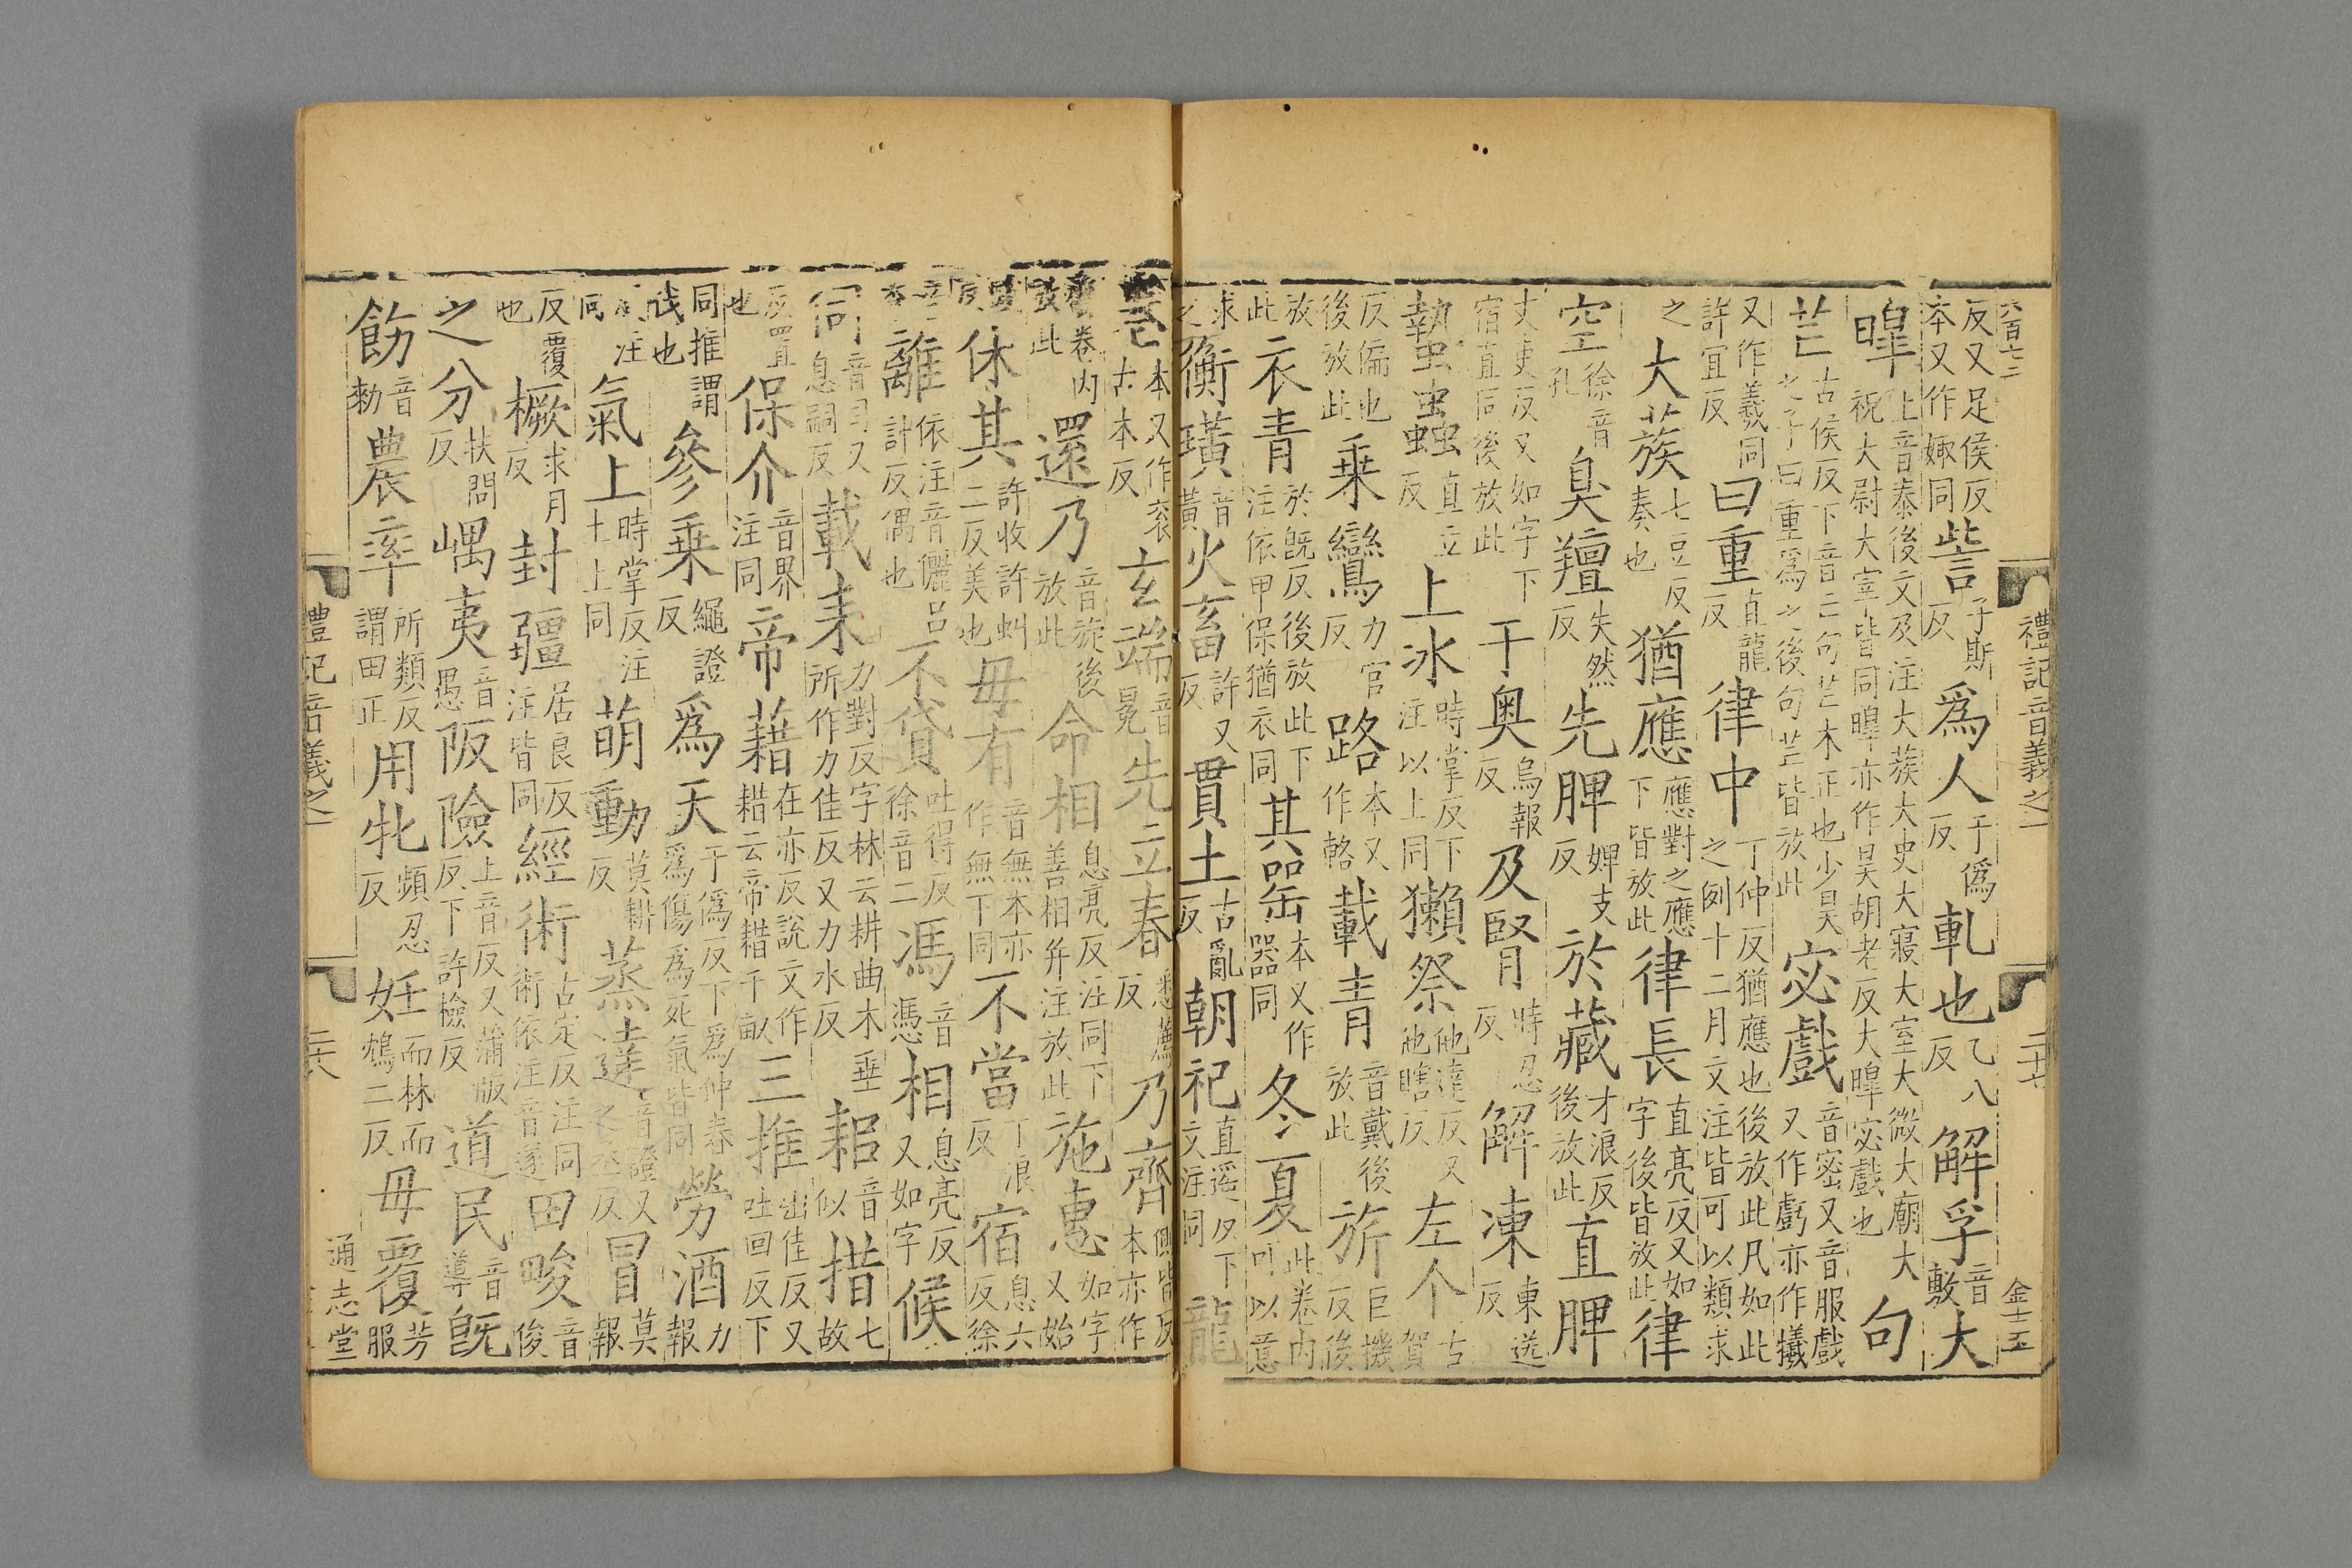 六百七二 禮記音義之一 二十七 金士玉
反又足侯反本又作娵同訾子斯反爲人于僞反軋也乙八反解孚音敷大
皥上音泰後文及注大蔟大史大寢大室大微大廟大祝大尉大宰皆同皥亦作昊胡老反大皥宓戲也句
芒古侯反下音亡句芒木正也少昊之子曰重爲之後句芒皆放此宓戲音密又音服戲又作虧亦作犧
又作羲同許宜反曰重直龍反律中丁仲反猶應也後放此凡如此之例十二月文注皆可以類求
之大蔟七豆反奏也猶應應對之應下皆放此律長直亮反又如字後皆放此律
空徐音孔臭羶失然反先脾婢支反於藏才浪反後放此直脾
丈吏反又如字下宿直同後放此于奥烏報反及腎時忍反解凍東送反
蟄蟲直立反上冰時掌反下注以上同獺祭他達反又他瞎反左个古賀
反偏也後放此乗鸞力官反路本又作輅載青音戴後放此旂巨機反後
放此衣青於旣反後放此下注依甲保猶衣同其器本又作噐同冬夏此卷内可以意
求之衡璜音黃火畜許又反貫土古亂反朝祀直遥反下文注同龍
卷本又作衮古本反玄端音冕先立春悉薦反乃齊側皆反本亦作
齋卷内放此還乃音旋後放此命相息亮反注同下善相幷注放此施惠如字又始
豉反休其許收許虯二反美也毋有音無本亦作無下同不當丁浪反宿息六反徐
音秀離依注音儷呂計反偶也不貸吐得反徐音二馮音憑相息亮反又如字候
伺音司又息嗣反載耒力對反字林云耕曲木垂所作力佳反又力水反耜音似措七故
反置也保介音界注同帝藉在亦反說文作耤云帝耤千畝三推出佳反又吐回反下
同推謂伐也參乗繩證反爲天于僞反下爲仲春爲傷爲死氣皆同勞酒力報
反注同氣上時掌反注土上同萌動莫耕反蒸達音證又之丞反冒莫報
反覆也橛求月反封疆居良反注皆同經術古定反注同術依注音遂田畯音俊
之分扶問反嵎夷音愚阪險上音反又蒲版反下許檢反道民音導旣
飭音勑農率所類反謂田正用牝頻忍反妊而林而鴆二反毋覆芳服
禮記音義之一 二十八 通志堂